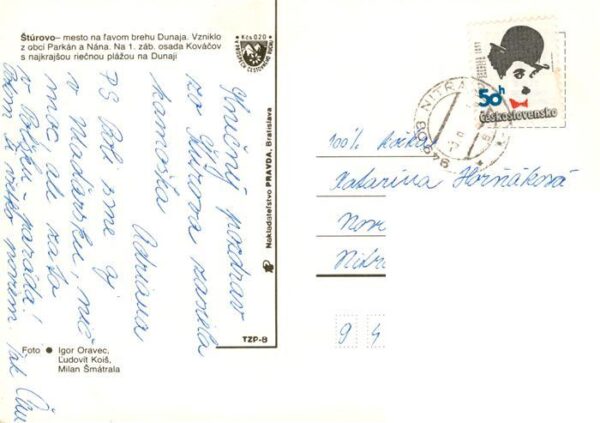 Štúrovo– mesto na ľavom brehu Dunaja. Vzniklo
z obcí Parkán a Nána. Na 1. záb. osada Kováčov
s najkrajšou riečnou plážou na Dunaji
Kčs 0,20
Slnečný pozdrav
zo Štúrova zasiela
kamoška
Adriana
PS Boli sme aj
v Maďarsku, nič
moc, ale zato
v - paráda!
Foto ● Igor Oravec,
Ľudovít Koiš,
Milan Šmátrala
Nakladateľstvo PRAVDA, Bratislava
TZP-8
949 08 NITRA
50h
Československo
100% kočka
Katarína Horňáková
Nov
Nitr
9 4